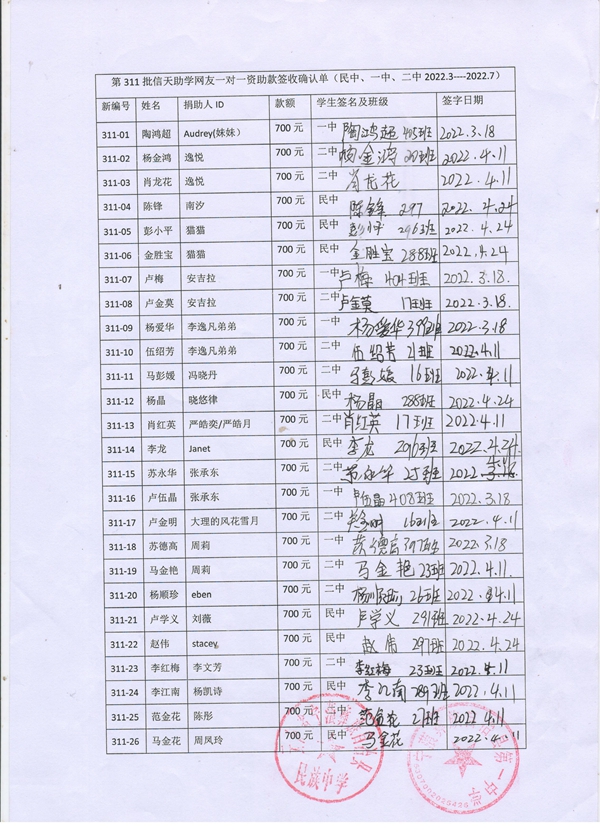 第 311 批信天助学网友一对一资助款签收确认单（民中、一中、二中 2022.3----2022.7）
新编号 姓名 捐助人 ID 款额 学生签名及班级 签字日期
311-01 陶鸿超 Audrey(妹妹) 700 元 一中 陶鸿超 405班 2022.3.18
311-02 杨金鸿 逸悦 700 元 二中 杨金鸿 20班 2022.4.11
311-03 肖龙花 逸悦 700 元 二中 肖龙花 2022.4.11
311-04 陈锋 南汐 700 元 民中 陈锋 297 2022.4.24
311-05 彭小平 猫猫 700 元 民中 296班 2022.4.24
311-06 金胜宝 猫猫 700 元 民中 金胜宝 288班 2022.4.24
311-07 卢梅 安吉拉 700 元 一中 卢梅 404班 2022.3.18.
311-08 卢金莫 安吉拉 700 元 二中 卢金莫 17班 2022.3.18.
311-09 杨爱华 李逸凡弟弟 700 元 一中 杨爱华 398班 2022.3.18
311-10 伍绍芳 李逸凡弟弟 700 元 二中 伍绍芳 21班 2022.4.11
311-11 马彭媛 冯晓丹 700 元 二中 马彭媛 16班 2022.4.11
311-12 杨晶 晓悠律 700 元 民中 杨晶 288班 2022.4.24
311-13 肖红英 严皓奕/严皓月 700 元 二中 肖红英 17班 2022.4.11
311-14 李龙 Janet 700 元 民中 李龙 296班 2022.4.24
311-15 苏永华 张承东 700 元 二中 苏永华 25班 2022. 4.11
311-16 卢伍晶 张承东 700 元 一中 卢伍晶 408班 2022.3.18
311-17 卢金明 大理的风花雪月 700 元 二中 16班 2022.4.11
311-18 苏德高 周莉 700 元 一中 苏德高 397班 2022.3.18
311-19 马金艳 周莉 700 元 二中 马金艳 23班 2022.4.11.
311-20 杨顺珍 eben 700 元 二中 杨顺珍 26班 2022.4.11
311-21 卢学义 刘薇 700 元 民中 卢学义 291班 2022.4.24
311-22 赵伟 stacey 700 元 民中 赵伟 297班 2022.4.24
311-23 李红梅 李文芳 700 元 二中 李红梅 23班 2022.4.11
311-24 李江南 杨凯诗 700 元 民中 李江南 289班 2022.4.11
311-25 范金花 陈彤 700 元 二中 范金花 27班 2022 4.11
311-26 马金花 周凤玲 700 元 民中 马金花 2022.4.11
民族中学
第一中学